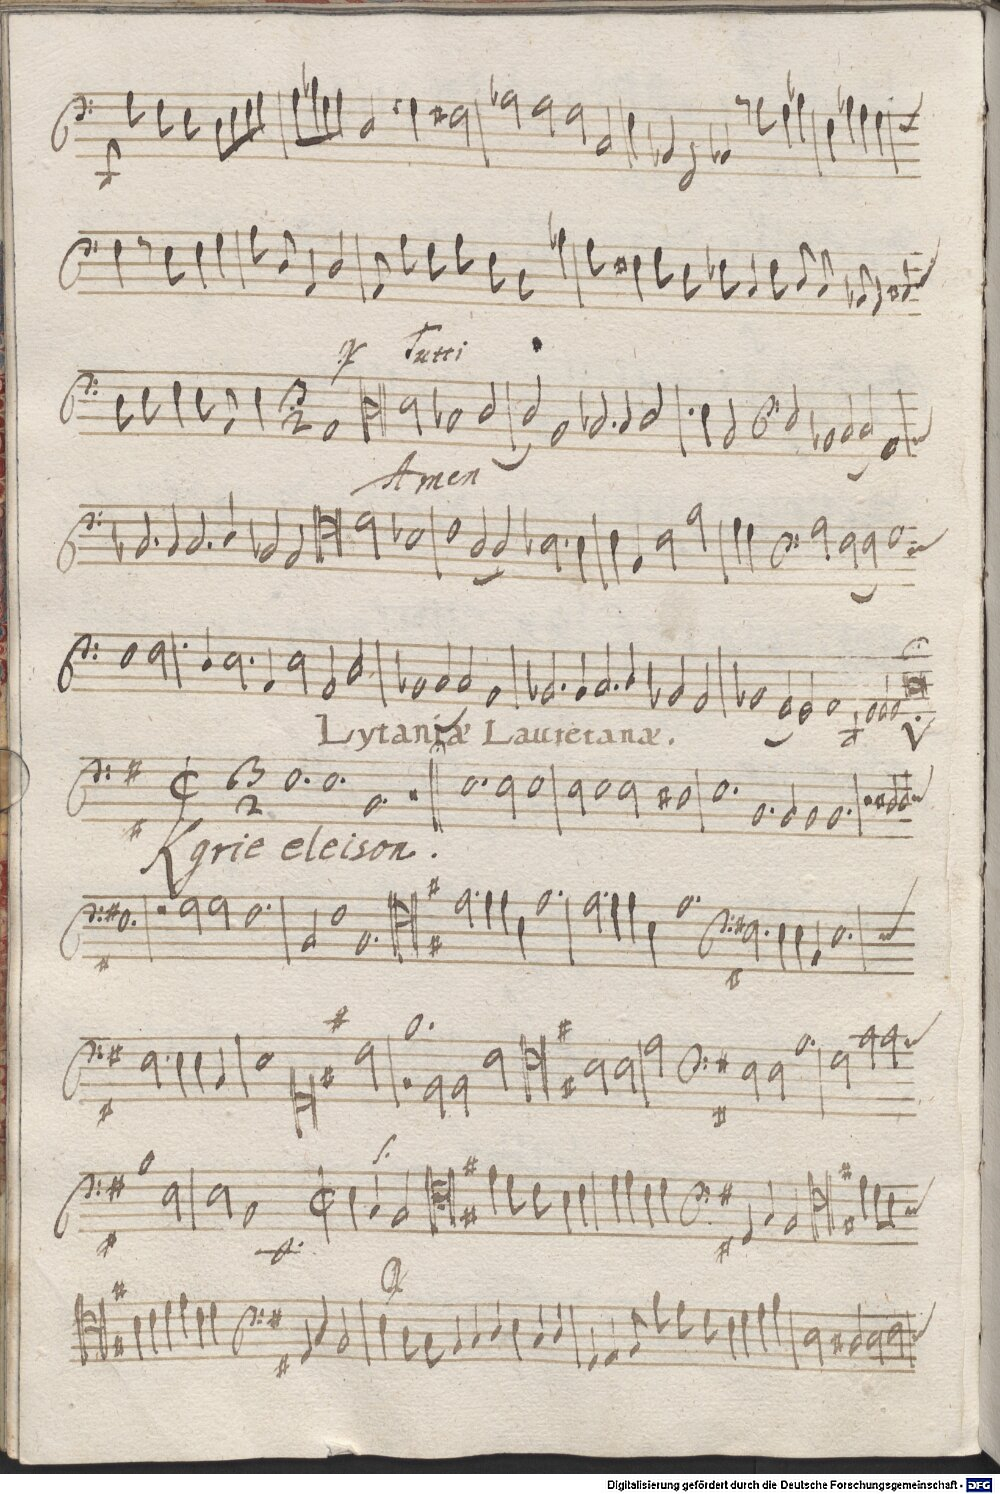 Tutti
Amen
Lytaniæ Lauretanæ.
Kyrie eleison.
Digitalisierung gefördert durch die Deutsche Forschungsgemeinschaft - DFG